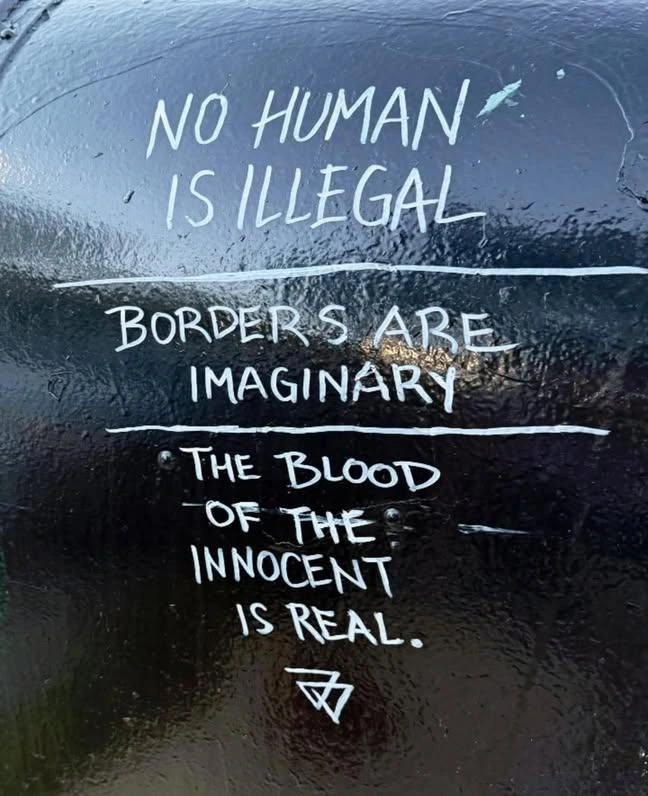 NO HUMAN
IS ILLEGAL
BORDERS ARE
IMAGINARY
THE BLOOD
OF THE
INNOCENT
IS REAL.